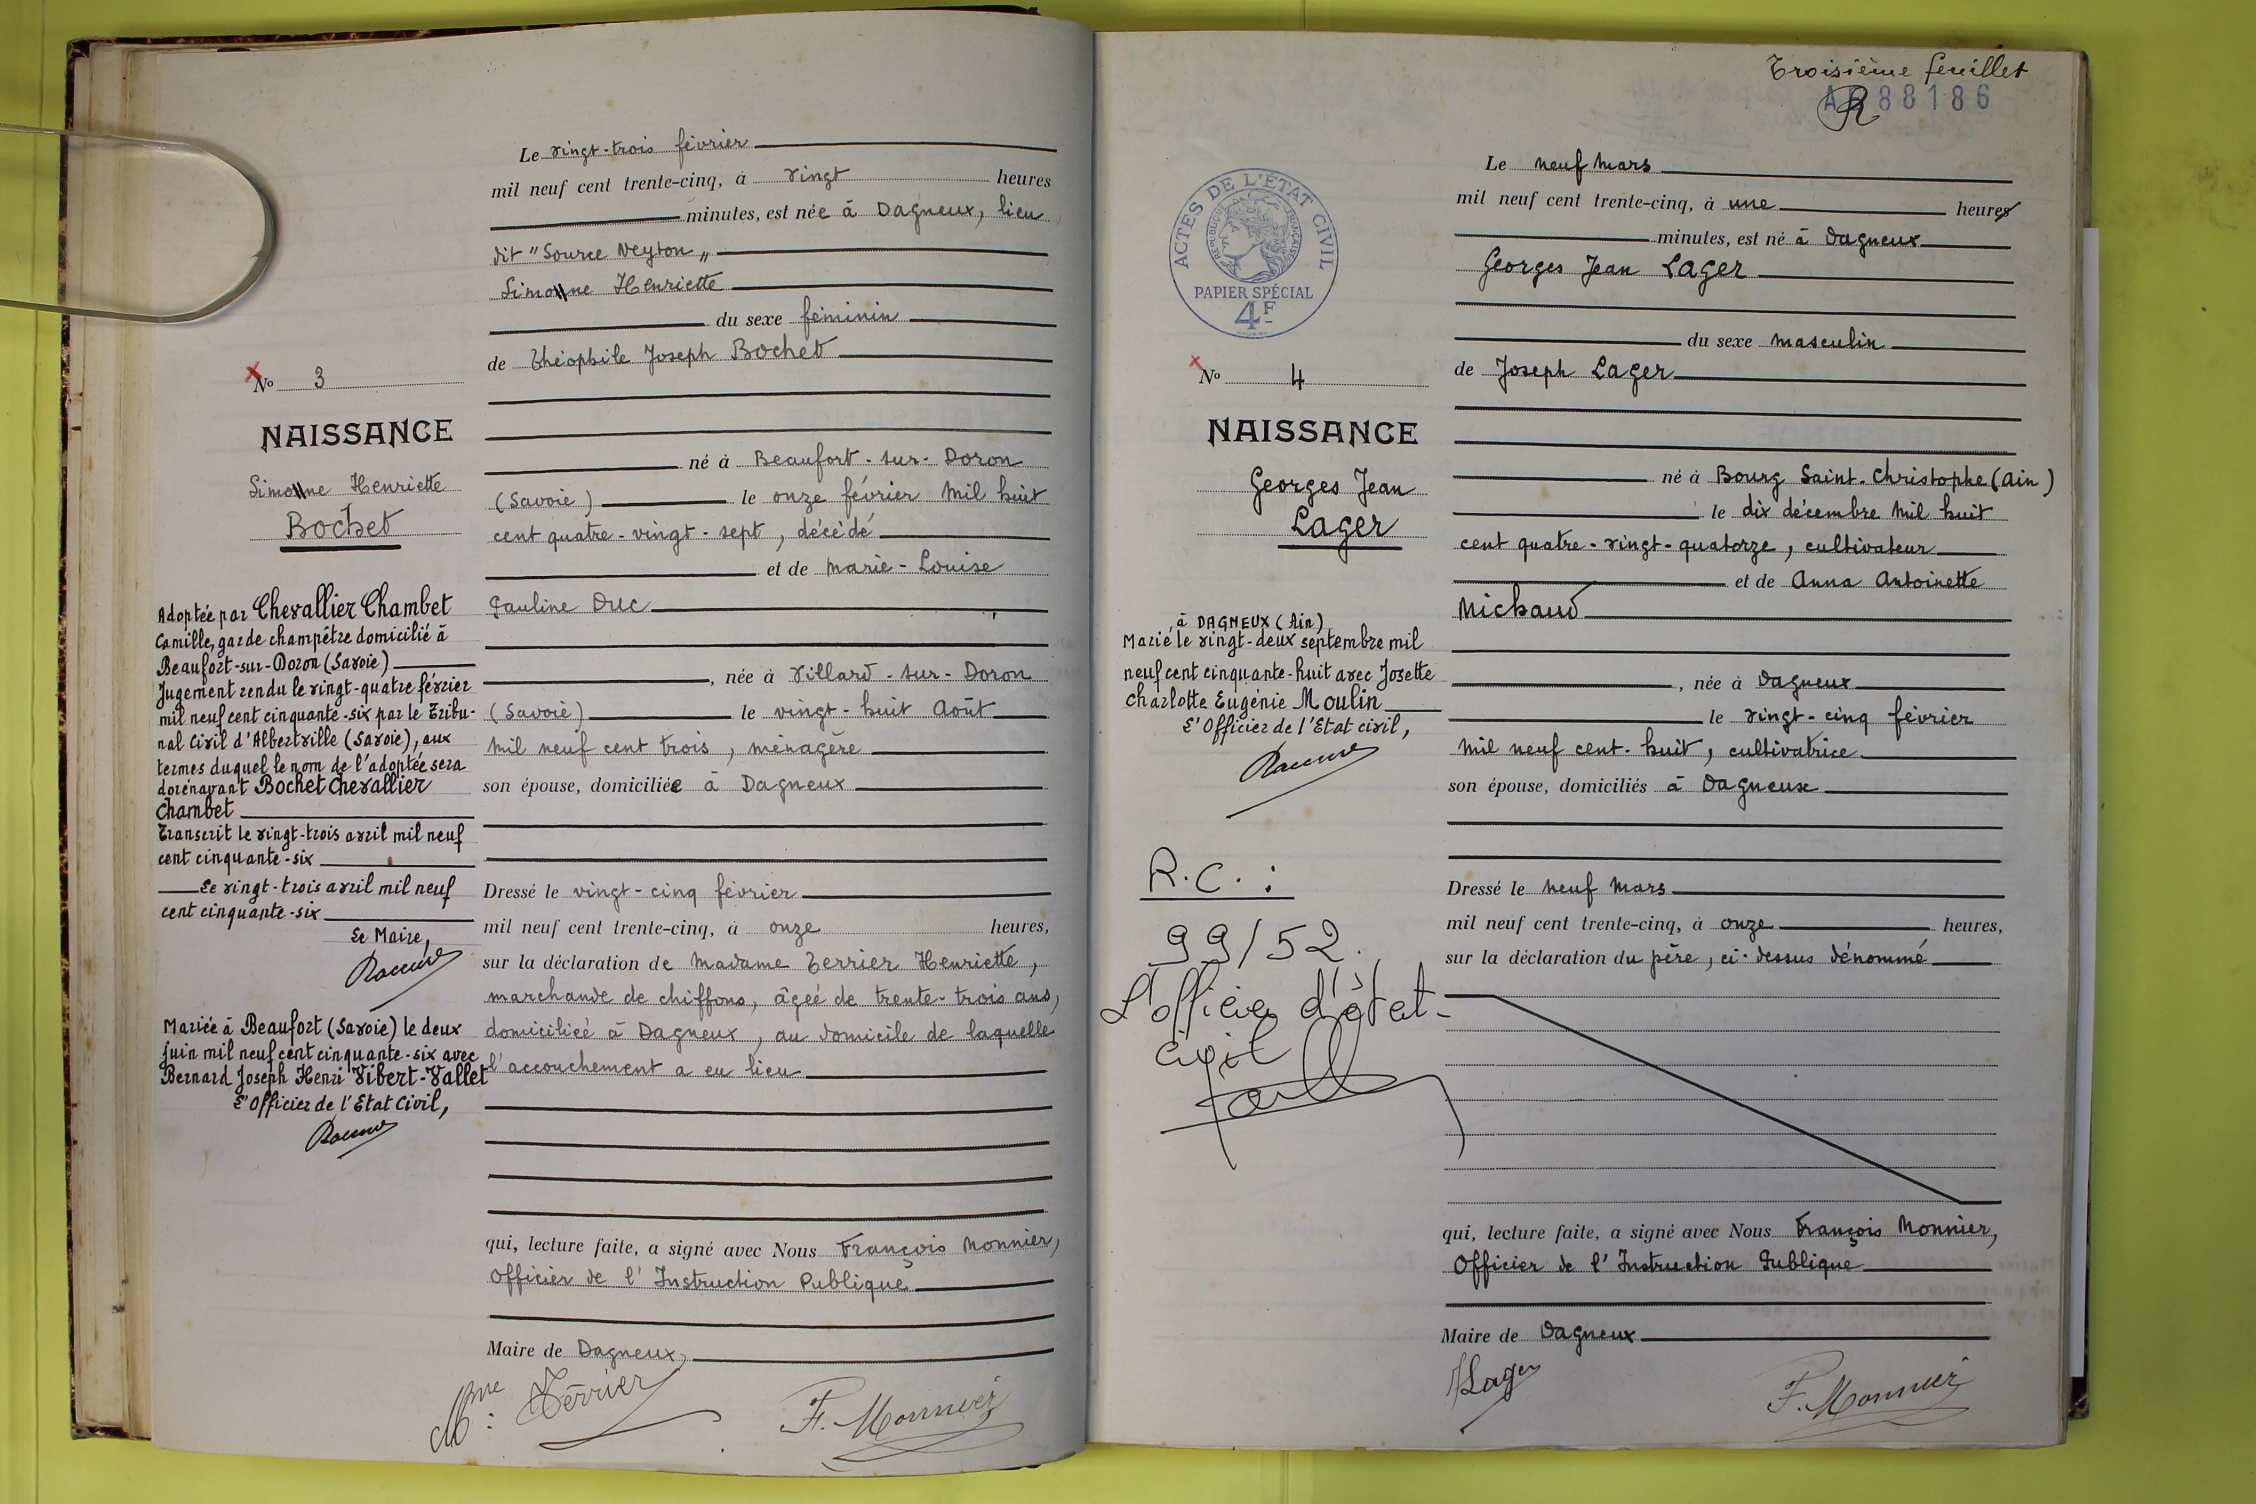 Le vingt-trois février
mil neuf cent trente-cinq, à vingt heures
minutes, est née à Dagneux, lieu
dit "Source Veyron"
Simonne Henriette
du sexe féminin
de Théophile Joseph Bochet
né à Beaufort-sur-Doron
(Savoie) le onze février mil huit
cent quatre-vingt-sept, décédé
et de Marie-Louise
Pauline Duc
, née à Villard-sur-Doron
(Savoie) le vingt-huit Août
mil neuf cent trois, ménagère
son épouse, domiciliée à Dagneux
Dressé le vingt-cinq février
mil neuf cent trente-cinq, à onze heures,
sur la déclaration de Madame Terrier Henriette,
marchande de chiffons, âgée de trente-trois ans,
domiciliée à Dagneux, au domicile de laquelle
l'accouchement a eu lieu
qui, lecture faite, a signé avec Nous François Monnier,
Officier de l'Instruction Publique
Maire de Dagneux,
Mme: Terrier F. Monnier
No 3
NAISSANCE
Simonne Henriette
Bochet
Adoptée par Chevallier Chambet
Camille, garde champêtre domicilié à
Beaufort-sur-Doron (Savoie)
Jugement rendu le vingt-quatre février
mil neuf cent cinquante-six par le Tribu-
nal Civil d'Albertville (Savoie), aux
termes duquel le nom de l'adoptée sera
dorénavant Bochet Chevallier
Chambet
Transcrit le vingt-trois avril mil neuf
cent cinquante-six
Le vingt-trois avril mil neuf
cent cinquante-six
Le Maire,
Mariée à Beaufort (Savoie) le deux
juin mil neuf cent cinquante-six avec
Bernard Joseph Henri Vibert-Vallet
L'Officier de l'Etat Civil,
Troisième feuillet
88186
ACTES DE L'ÉTAT CIVIL
RÉPUBLIQUE FRANÇAISE
PAPIER SPÉCIAL
4F
No 4
NAISSANCE
Georges Jean
Lager
à DAGNEUX (Ain)
Marié le vingt-deux septembre mil
neuf cent cinquante-huit avec Josette
Charlotte Eugénie Moulin
L'Officier de l'Etat civil,
R.C.:
99/52.
L'officier d'état-
civil
Le neuf mars
mil neuf cent trente-cinq, à une heures
minutes, est né à Dagneux
Georges Jean Lager
du sexe masculin
de Joseph Lager
né à Bourg Saint-Christophe (Ain)
le dix décembre mil huit
cent quatre-vingt-quatorze, cultivateur
et de Anna Antoinette
Michaud
, née à Dagneux
le vingt-cinq février
mil neuf cent-huit, cultivatrice
son épouse, domiciliés à Dagneux
Dressé le neuf mars
mil neuf cent trente-cinq, à onze heures,
sur la déclaration du père, ci-dessus dénommé
qui, lecture faite, a signé avec Nous François Monnier,
Officier de l'Instruction Publique
Maire de Dagneux
Lager F. Monnier